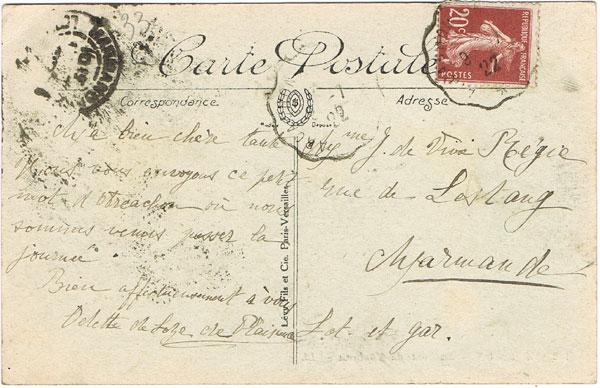 33
Carte Postale
20c
REPUBLIQUE FRANÇAISE
POSTES
22
Correspondance
Adresse
bien chère tante
Nous vous envoyons ce petit
mot d'Arcachon où nous
sommes venus passer la
journée
Bien affectueusement à vous
Odette de de Plaisance
Lévy Fils et Cie. Paris-Versailles
Mme J. de Régie
rue de Lostang
Marmande
Lot et gar.